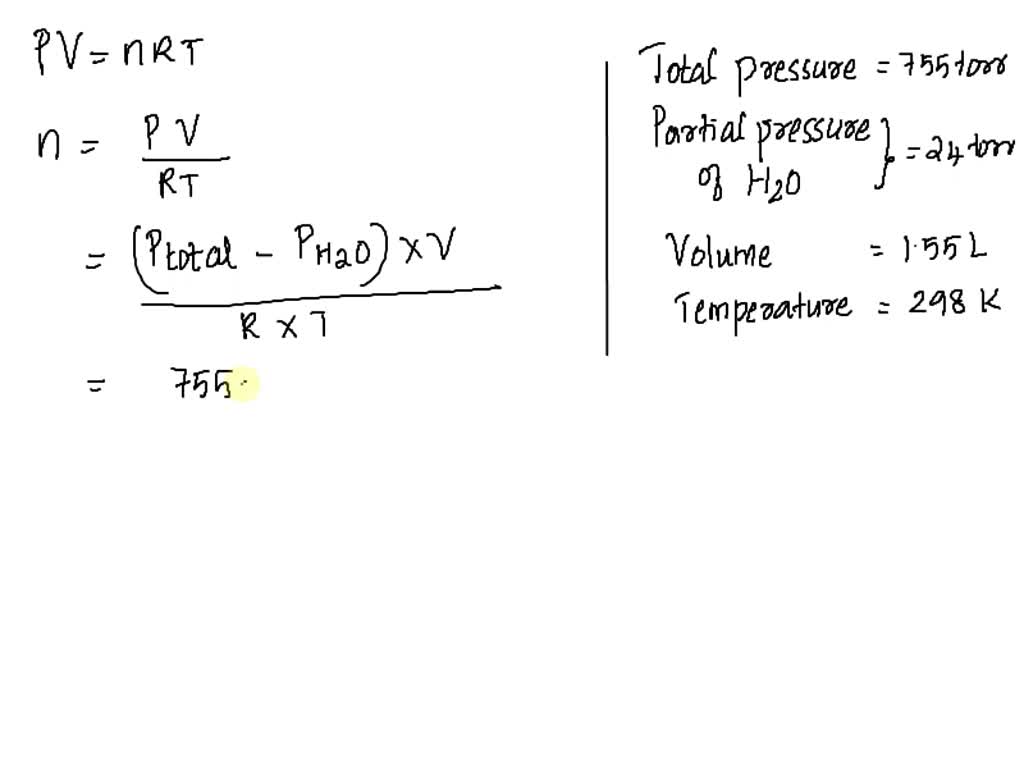 PV = nRT
n = PV
RT
= (Ptotal - PH2O) × V
R × T
= 755
Total pressure = 755 torr
Partial pressure
of H2O } = 24 torr
Volume = 1.55 L
Temperature = 298 K